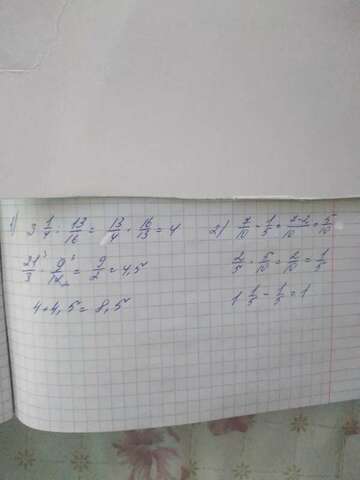 1) 3 1/4 : 13/16 = 13/4 · 16/13 = 4
21/3 · 9/14 = 9/2 = 4,5
4+4,5=8,5
2) 7/10 - 1/5 = 7-2/10 = 5/10
2/5 · 5/10 = 2/10 = 1/5
1 1/5 - 1/5 = 1